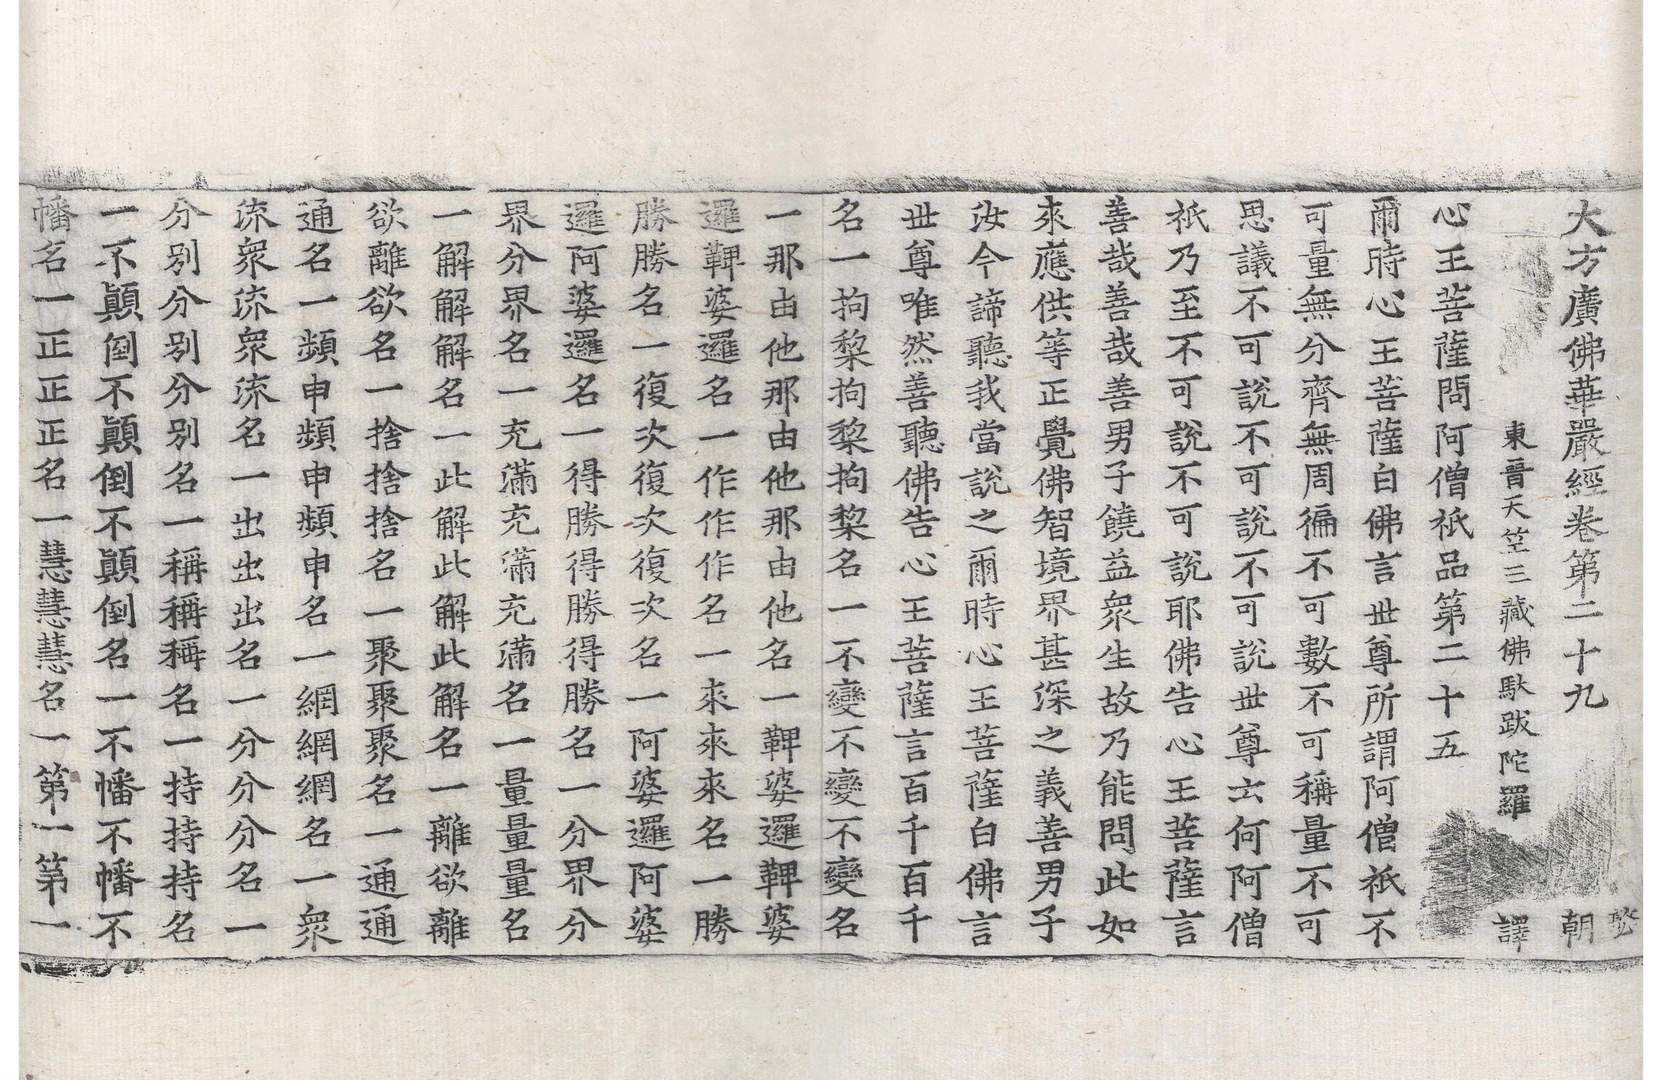 大方廣佛華嚴經卷第二十九 朝
東晉天竺三藏佛馱跋陀羅 譯
心王菩薩問阿僧祇品第二十五
爾時心王菩薩白佛言世尊所謂阿僧祇不
可量無分齊無周徧不可數不可稱量不可
思議不可說不可說不可說世尊云何阿僧
祇乃至不可說不可說耶佛告心王菩薩言
善哉善哉善男子饒益衆生故乃能問此如
來應供等正覺佛智境界甚深之義善男子
汝今諦聽我當說之爾時心王菩薩白佛言
世尊唯然善聽佛告心王菩薩言百千百千
名一拘梨拘梨拘梨名一不變不變不變名
一那由他那由他那由他名一鞞婆邏鞞婆
邏鞞婆邏名一作作作名一來來來名一勝
勝勝名一復次復次復次名一阿婆邏阿婆
邏阿婆邏名一得勝得勝得勝名一分界分
界分界名一充滿充滿充滿名一量量量名
一解解解名一此解此解此解名一離欲離
欲離欲名一捨捨捨名一聚聚聚名一通通
通名一頻申頻申頻申名一網網網名一衆
流衆流衆流名一出出出名一分分分名一
分別分別分別名一稱稱稱名一持持持名
一不顚倒不顚倒不顚倒名一不幡不幡不
幡名一正正正名一慧慧慧名一第一第一